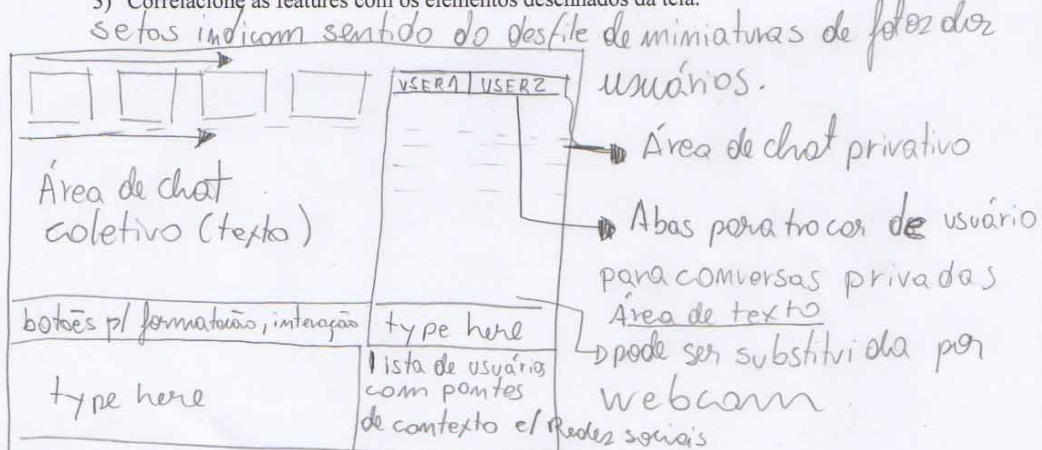 3) Correlacione as features com os elementos desenhados da tela.
setas indicam sentido do desfile de miniaturas de fotos dos
usuários.
USER1 | USER2
Área de chat privativo
Área de chat
coletivo (texto)
Abas para trocar de usuário
para conversas privadas
Área de texto
pode ser substituida por
webcam
botões p/ formatação, interação
type here
type here
lista de usuários
com pontes
de contexto c/ Redes sociais